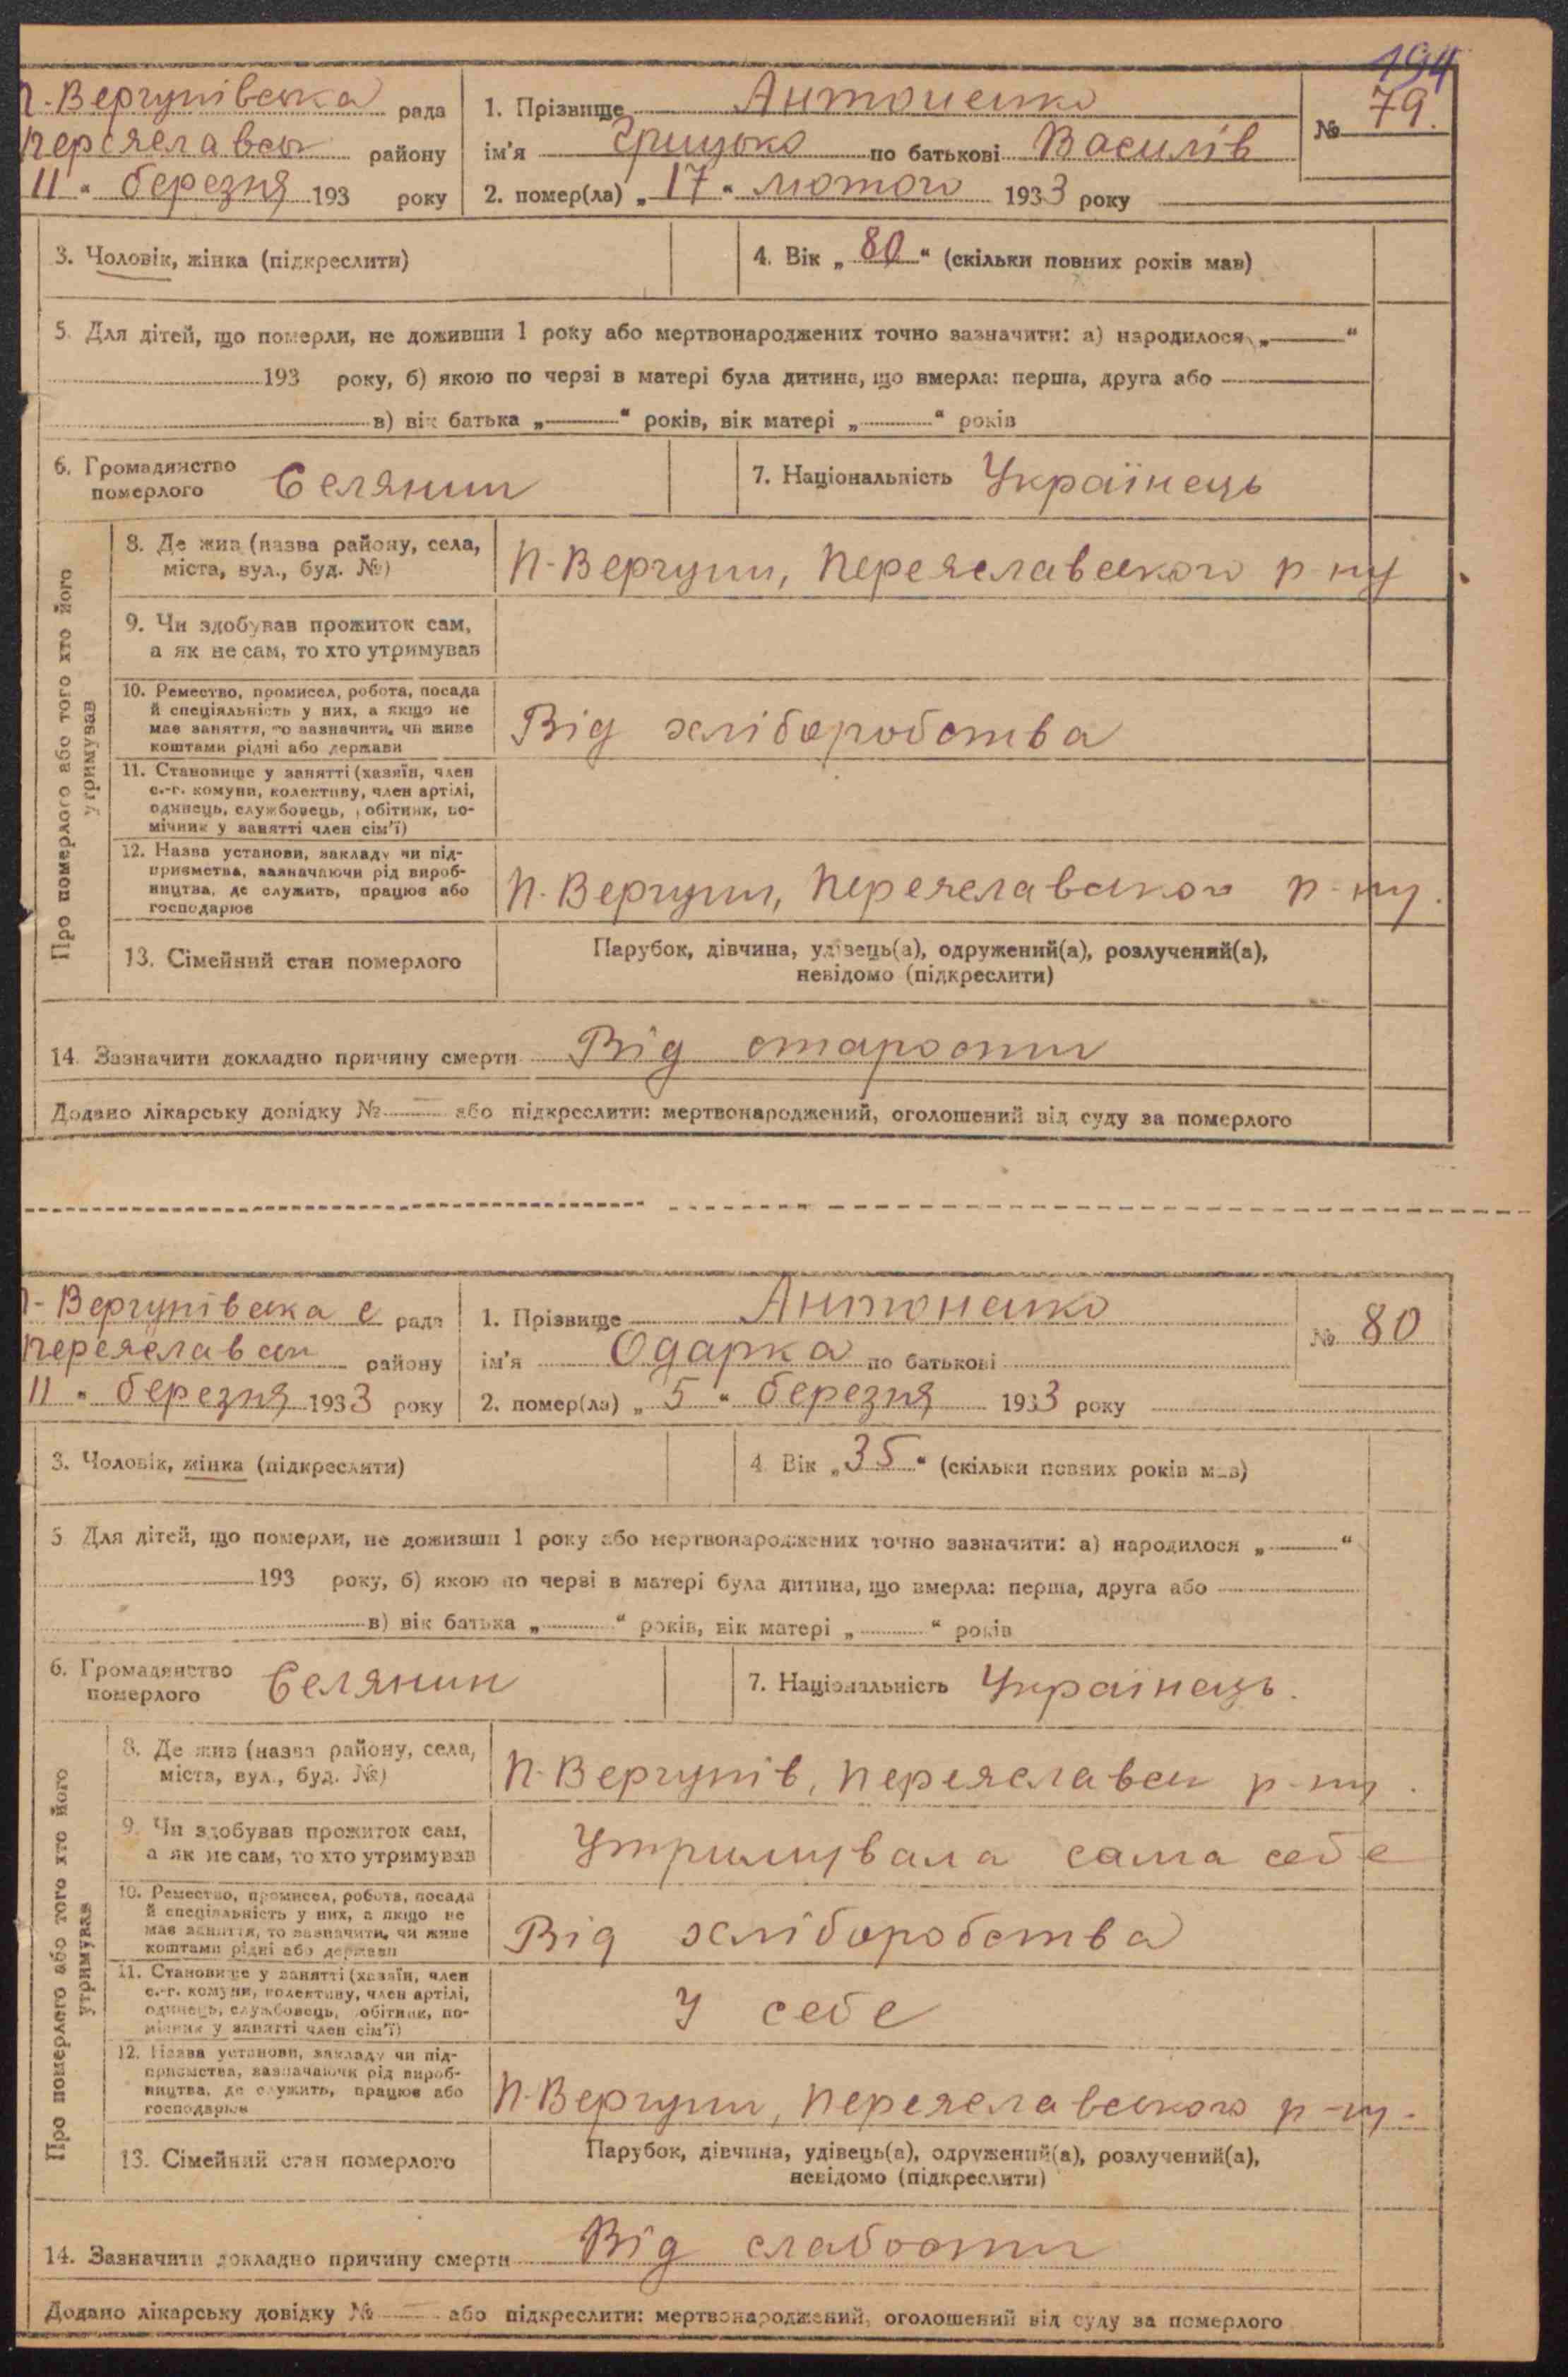 194
П.-Вергунівська рада
Переяславськ району
11 " березня 193 року
1. Прізвище Антоненко
№ 79.
ім'я Грицько по батькові Василів
2. помер(ла) „ 17 " лютого 1933 року
3. Чоловік, жінка (підкреслити)
4. Вік „ 80 " (скільки повних років мав)
5. Для дітей, що померли, не доживши 1 року або мертвонароджених точно зазначити: а) народилося „ "
193 року, б) якою по черзі в матері була дитина, що вмерла: перша, друга або
в) вік батька „ " років, вік матері „ " років
6. Громадянство
померлого Селянин
7. Національність Українець
Про померлого або того хто його
утримував
8. Де жив (назва району, села,
міста, вул., буд. №)
П-Вергуни, Переяславського р-ну
9. Чи здобував прожиток сам,
а як не сам, то хто утримував
10. Ремество, промисел, робота, посада
й спеціяльність у них, а якщо не
має заняття, то зазначити, чи живе
коштами рідні або держави
Від хліборобства
11. Становище у занятті (хазяїн, член
с.-г. комуни, колективу, член артілі,
одинець, службовець, робітник, по-
мічник у занятті член сім'ї)
12. Назва установи, закладу чи під-
приємства, зазначаючи рід вироб-
ництва, де служить, працює або
господарює
П.-Вергуни, Переяславського р-ну.
13. Сімейний стан померлого
Парубок, дівчина, удівець(а), одружений(а), розлучений(а),
невідомо (підкреслити)
14. Зазначити докладно причину смерти Від старости
Додано лікарську довідку № або підкреслити: мертвонароджений, оголошений від суду за померлого
П-Вергунівська с рада
Переяславськ району
11 " березня 1933 року
1. Прізвище Антоненко
№ 80
ім'я Одарка по батькові
2. помер(ла) „ 5 " березня 1933 року
3. Чоловік, жінка (підкреслити)
4. Вік „ 35 " (скільки повних років мав)
5. Для дітей, що померли, не доживши 1 року або мертвонароджених точно зазначити: а) народилося „ "
193 року, б) якою по черзі в матері була дитина, що вмерла: перша, друга або
в) вік батька „ " років, вік матері „ " років
6. Громадянство
померлого Селянин
7. Національність Українець.
Про померлого або того хто його
утримував
8. Де жив (назва району, села,
міста, вул., буд. №)
П-Вергунів, Переяславськ р-ну.
9. Чи здобував прожиток сам,
а як не сам, то хто утримував
Утримувала сама себе
10. Ремество, промисел, робота, посада
й спеціяльність у них, а якщо не
має заняття, то зазначити, чи живе
коштами рідні або держави
Від хліборобства
11. Становище у занятті (хазяїн, член
с.-г. комуни, колективу, член артілі,
одинець, службовець, робітник, по-
мічник у занятті член сім'ї)
У себе
12. Назва установи, закладу чи під-
приємства, зазначаючи рід вироб-
ництва, де служить, працює або
господарює
П-Вергуни, Переяславського р-ну.
13. Сімейний стан померлого
Парубок, дівчина, удівець(а), одружений(а), розлучений(а),
невідомо (підкреслити)
14. Зазначити докладно причину смерти Від слабости
Додано лікарську довідку № або підкреслити: мертвонароджений, оголошений від суду за померлого